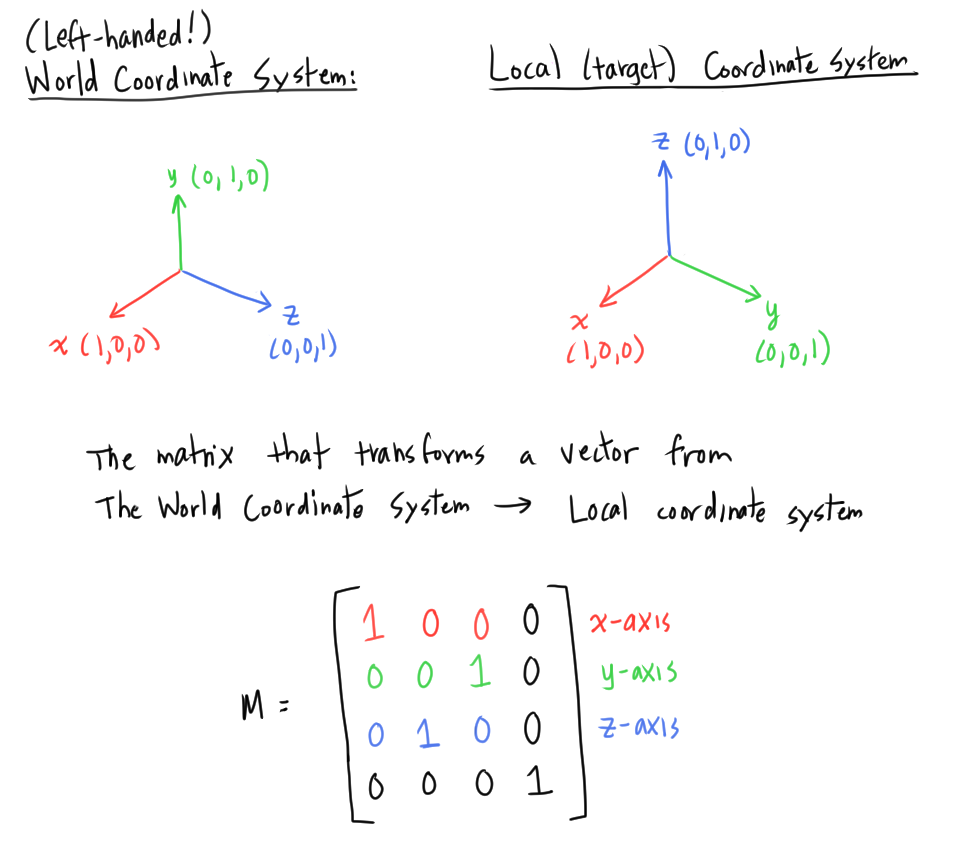 (Left-handed!)
World Coordinate System:
Local (target) Coordinate System
y (0, 1, 0)
x (1, 0, 0)
z
(0, 0, 1)
z (0, 1, 0)
x
(1, 0, 0)
y
(0, 0, 1)
The matrix that transforms a vector from
The World Coordinate System → Local coordinate system
M =
1 0 0 0 x-axis
0 0 1 0 y-axis
0 1 0 0 z-axis
0 0 0 1